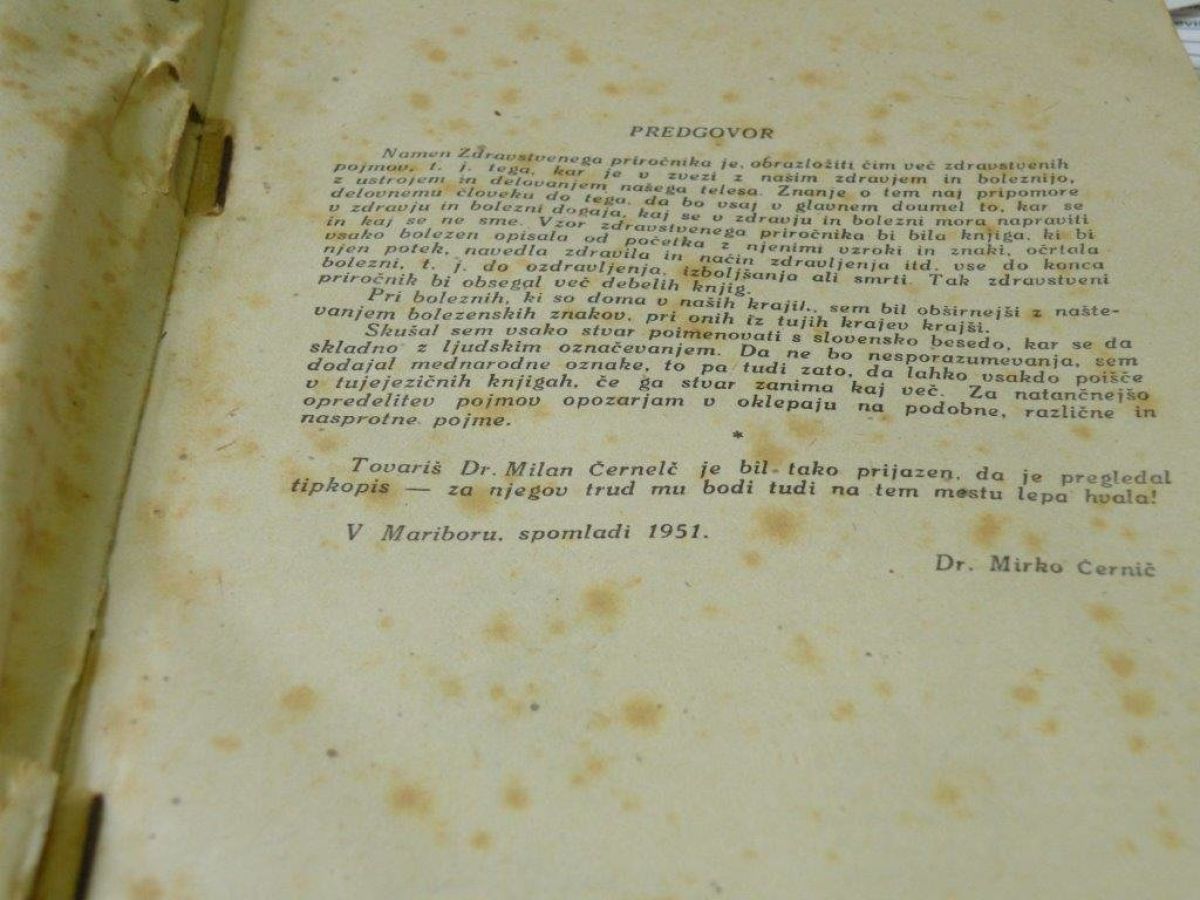 PREDGOVOR
Namen Zdravstvenega priročnika je, obrazložiti čim več zdravstvenih
pojmov, t. j. tega, kar je v zvezi z našim zdravjem in boleznijo,
z ustrojem in delovanjem našega telesa. Znanje o tem naj pripomore
delovnemu človeku do tega, da bo vsaj v glavnem doumel to, kar se
v zdravju in bolezni dogaja, kaj se v zdravju in bolezni mora napraviti
in kaj se ne sme. Vzor zdravstvenega priročnika bi bila knjiga, ki bi
vsako bolezen opisala od početka z njenimi vzroki in znaki, očrtala
njen potek, navedla zdravila in način zdravljenja itd. vse do konca
bolezni, t. j. do ozdravljenja, izboljšanja ali smrti. Tak zdravstveni
priročnik bi obsegal več debelih knjig.
Pri boleznih, ki so doma v naših krajih, sem bil obširnejši z našte-
vanjem bolezenskih znakov, pri onih iz tujih krajev krajši.
Skušal sem vsako stvar poimenovati s slovensko besedo, kar se da
skladno z ljudskim označevanjem. Da ne bo nesporazumevanja, sem
dodajal mednarodne oznake, to pa tudi zato, da lahko vsakdo poišče
v tujejezičnih knjigah, če ga stvar zanima kaj več. Za natančnejšo
opredelitev pojmov opozarjam v oklepaju na podobne, različne in
nasprotne pojme.
*
Tovariš Dr. Milan Černelč je bil tako prijazen, da je pregledal
tipkopis — za njegov trud mu bodi tudi na tem mestu lepa hvala!
V Mariboru, spomladi 1951.
Dr. Mirko Černič